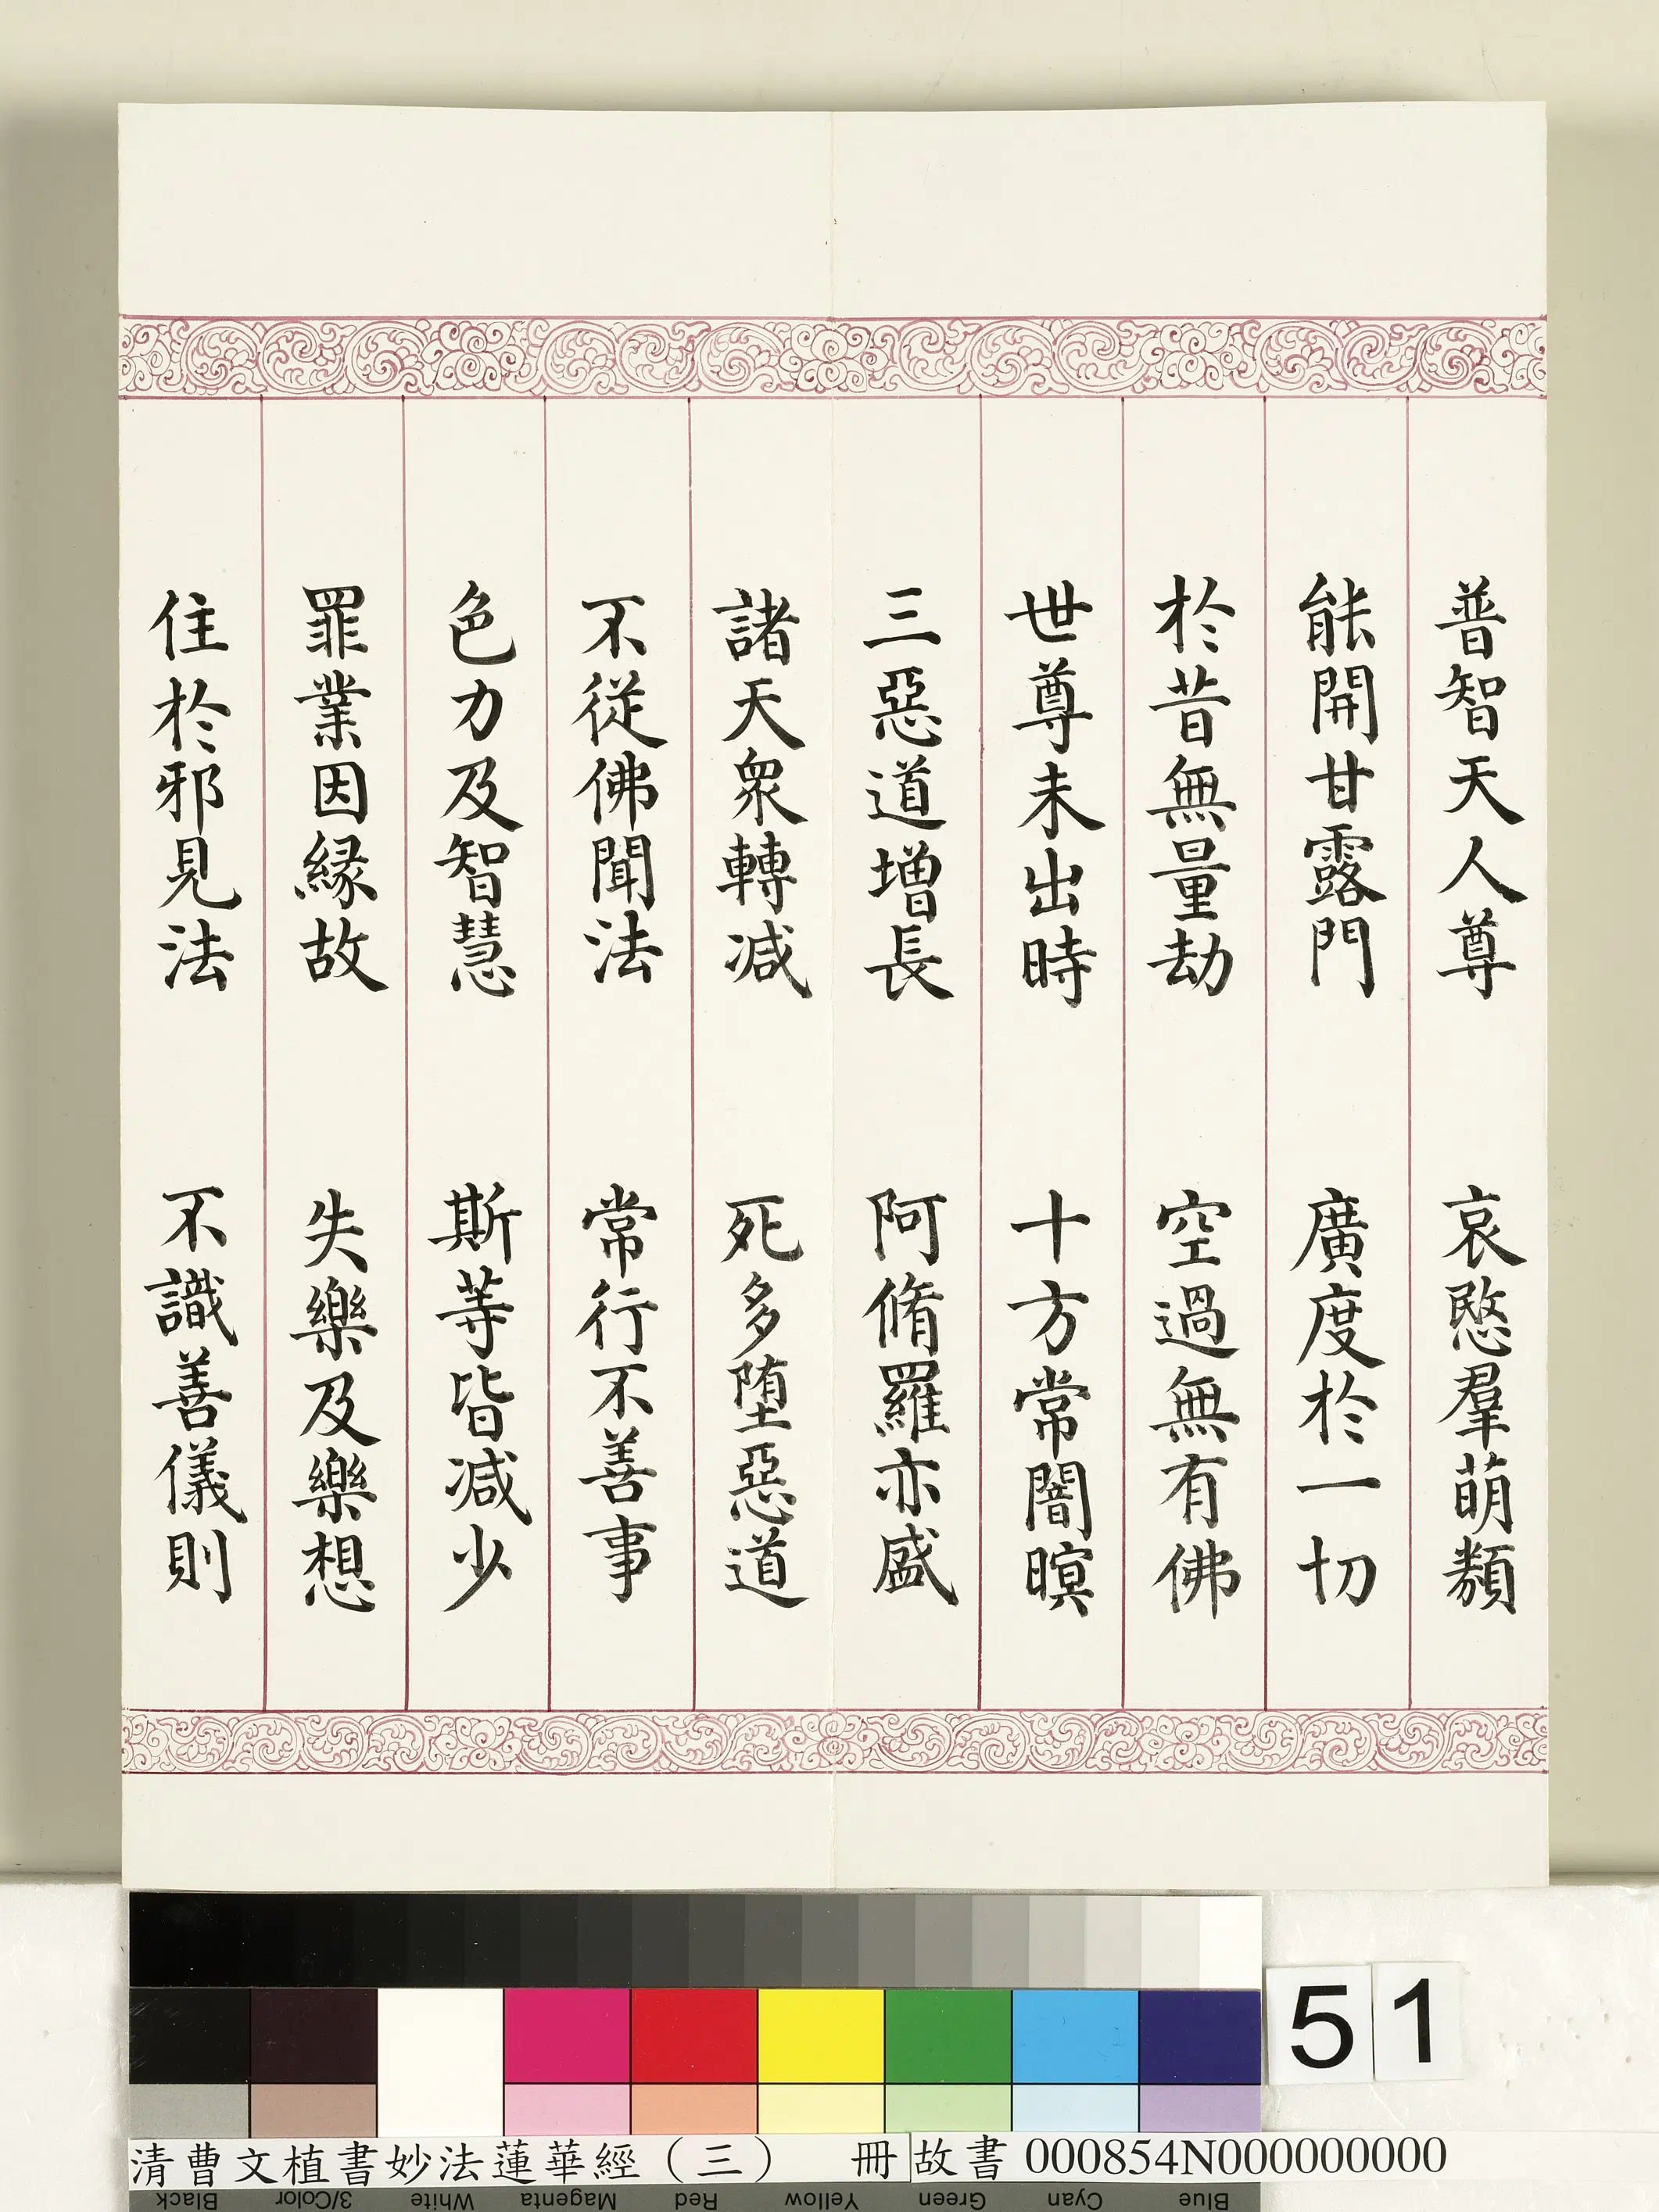 普智天人尊 哀愍羣萌類
能開甘露門 廣度於一切
於昔無量劫 空過無有佛
世尊未出時 十方常闇暝
三惡道增長 阿脩羅亦盛
諸天眾轉減 死多墮惡道
不從佛聞法 常行不善事
色力及智慧 斯等皆減少
罪業因緣故 失樂及樂想
住於邪見法 不識善儀則
51
清曹文植書妙法蓮華經（三） 冊 故書 000854N000000000
Black 3/Color White Magenta Red Yellow Green Cyan Blue